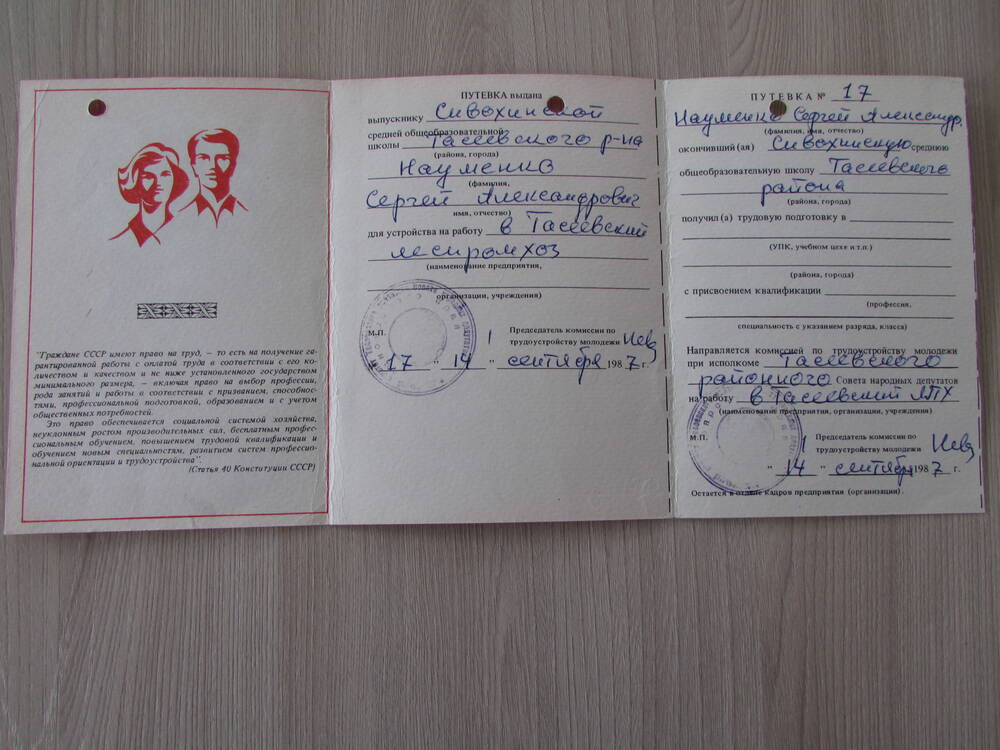 "Граждане СССР имеют право на труд, – то есть на получение га-
рантированной работы с оплатой труда в соответствии с его ко-
личеством и качеством и не ниже установленного государством
минимального размера, – включая право на выбор профессии,
рода занятий и работы в соответствии с призванием, способнос-
тями, профессиональной подготовкой, образованием и с учетом
общественных потребностей.
Это право обеспечивается социальной системой хозяйства,
неуклонным ростом производительных сил, бесплатным профес-
сиональным обучением, повышением трудовой квалификации и
обучением новым специальностям, развитием систем профессио-
нальной ориентации и трудоустройства".
(Статья 40 Конституции СССР)
ПУТЕВКА выдана
выпускнику Сивохинской
средней общеобразовательной
школы Тасеевского р-на
(района, города)
Науменко
(фамилия,
Сергей Александрович
имя, отчество)
для устройства на работу в Тасеевский
леспромхоз
(наименование предприятия,
организации, учреждения)
М.П.
Председатель комиссии по
трудоустройству молодежи
17 " 14 " сентября 1987 г.
ПУТЕВКА № 17
Науменко Сергей Александр.
(фамилия, имя, отчество)
окончивший (ая) Сивохинскую среднюю
общеобразовательную школу Тасеевского
района
(района, города)
получил (а) трудовую подготовку в
(УПК, учебном цехе и т.п.)
(района, города)
с присвоением квалификации
(профессия,
специальность с указанием разряда, класса)
Направляется комиссией по трудоустройству молодежи
при исполкоме Тасеевского
районного Совета народных депутатов
на работу в Тасеевский ЛПХ
(наименование предприятия, организации, учреждения)
М.П.
Председатель комиссии по
трудоустройству молодежи
" 14 " сентября 1987 г.
Остается в отделе кадров предприятия (организации).